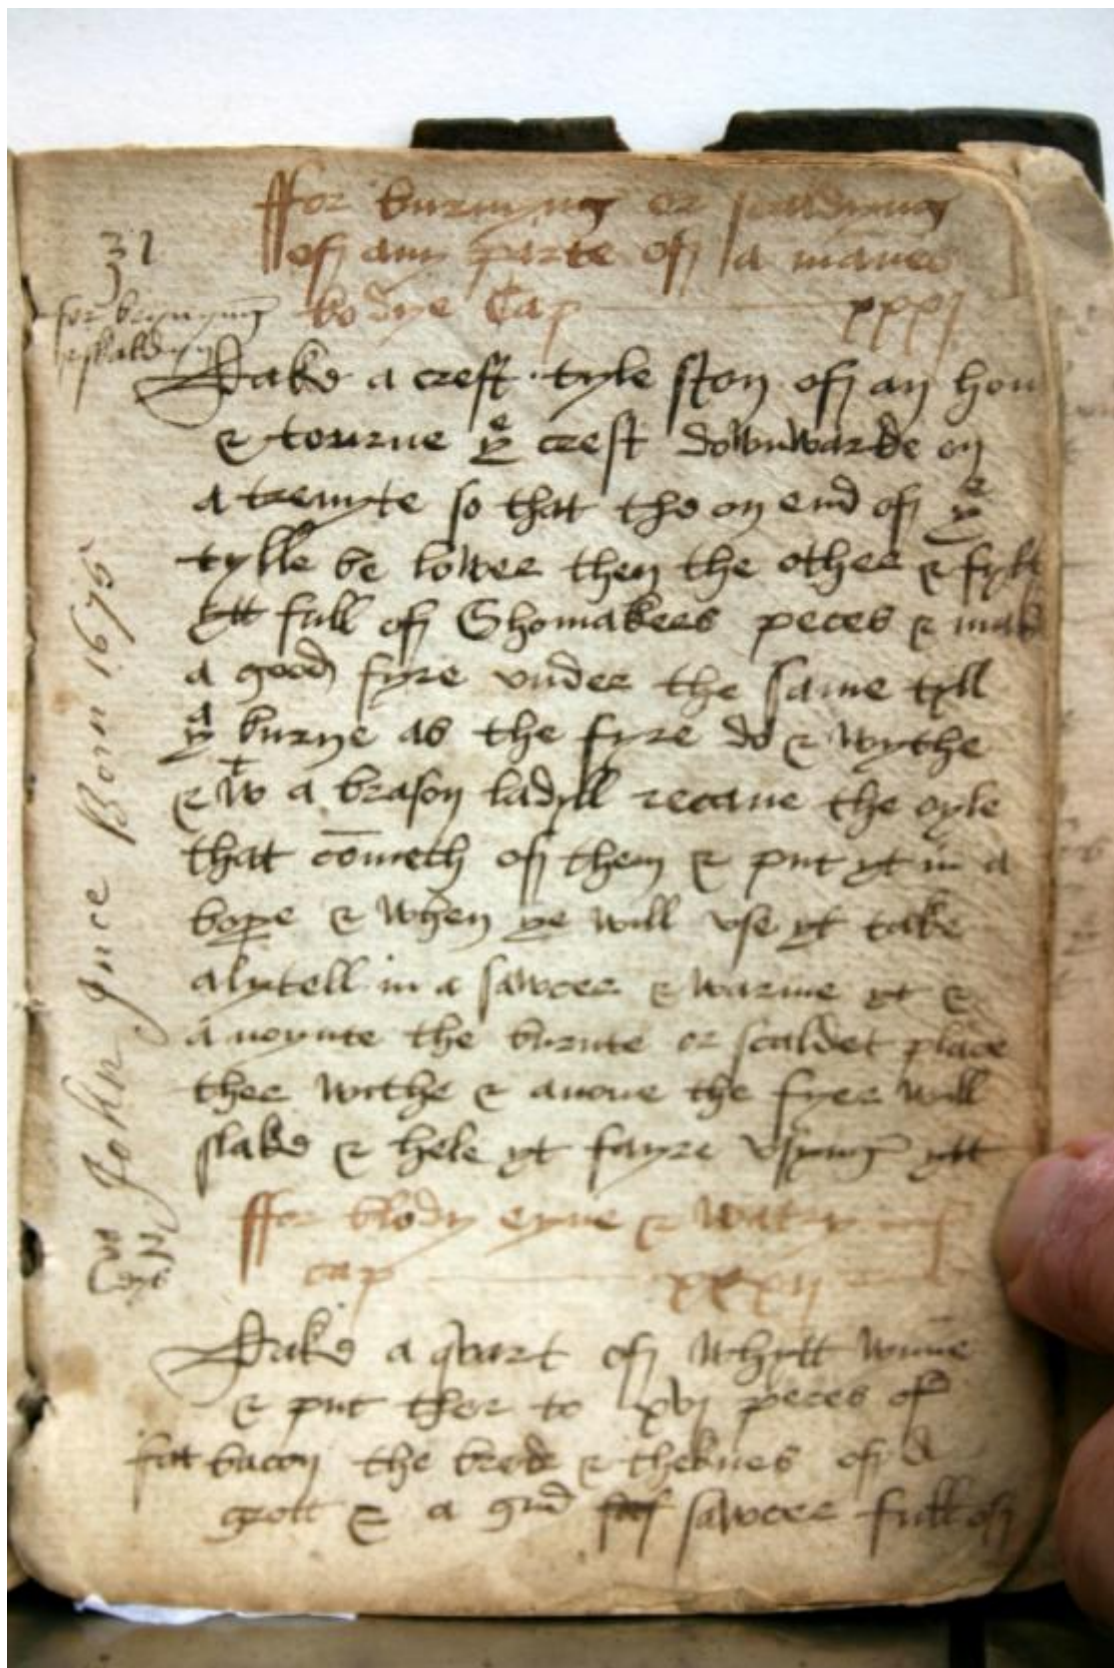 ffor burnyng or scaldyng
off any parte off a manes
bodye Cap xxxj
31
for brynnyng
& skaldyng
Take a crest tyle ston off an hou
& tourne yͤ crest downwarde on
a trevyte so that the on end off yͤ
tylle be lower then the other & fyll
ytt full off Shomakers peces & make
a good fyre under the same tyll
yͭ burne as the fyre do & wythe
& wͭ a brason ladyll receave the oyle
that cōmeth off them & put yt in a
boxe & when ye will vse yt take
a lytell in a sawcer & warme yt &
anoynte the burnte or scaldet place
ther withe & anone the fyer will
slake & hele yt fayre vsyng ytt
ffor blody eyne & watry
cap xxxij
Take a quart off whytt wyne
& put ther to xvj peces of
fat bacon the brede & theknes off a
grott & a gud sawcer full off
John Ince Born 1675